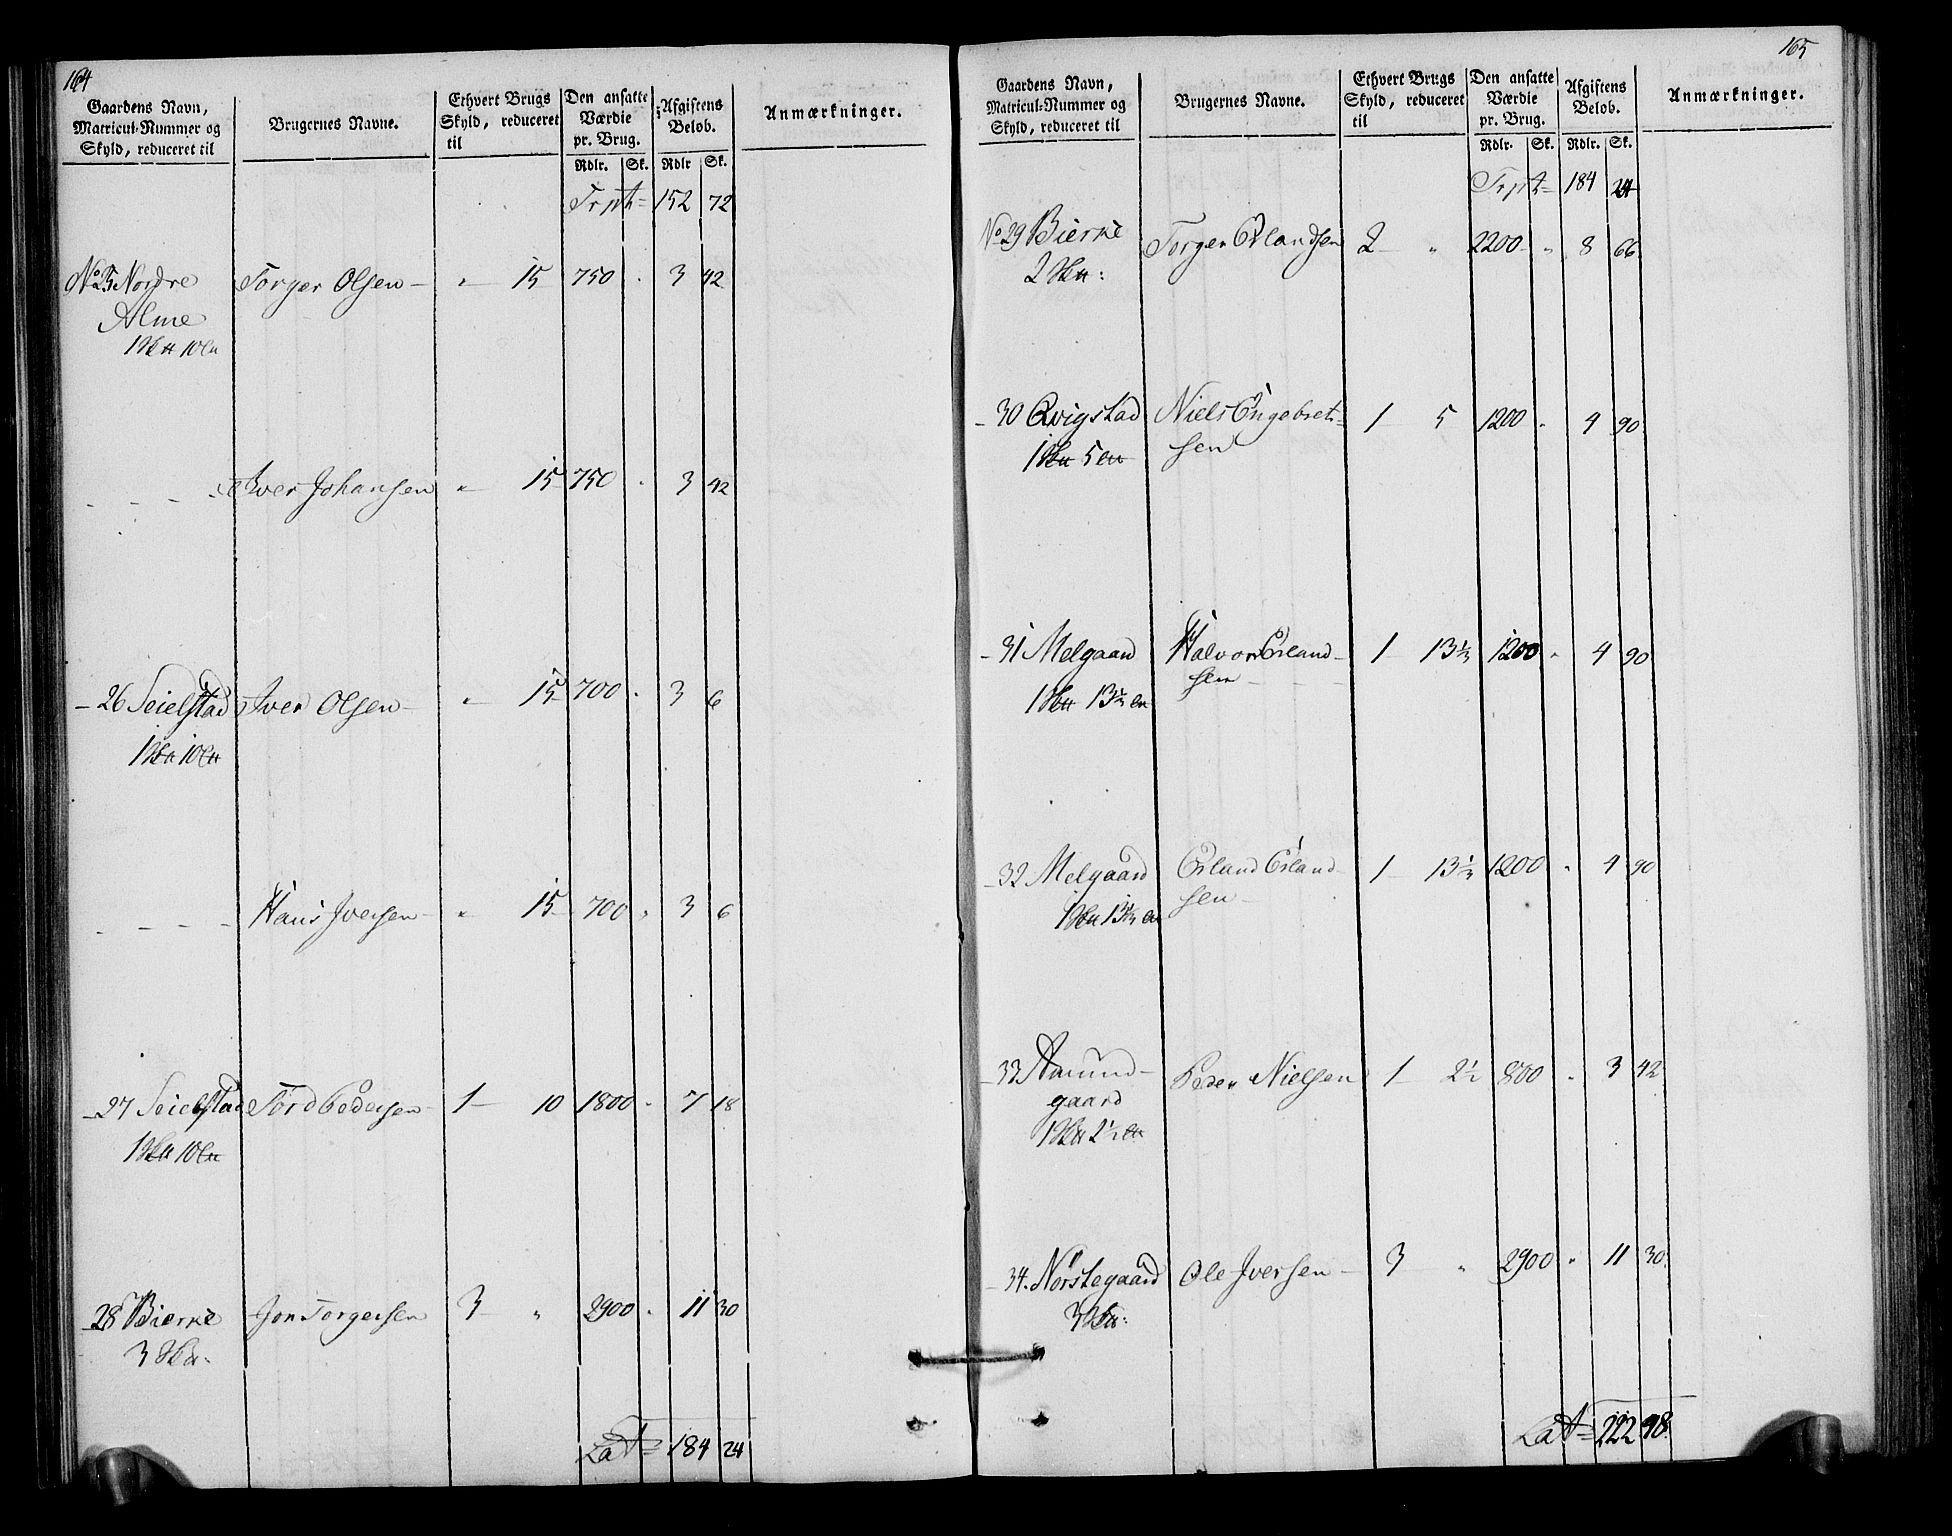 164
Gaardens Navn,
Matricul-Nummer og
Skyld, reduceret til
Brugernes Navne.
Ethvert Brugs
Skyld, reduceret
til
Den ansatte
Værdie
pr. Brug.
Rdlr. Sk.
Afgiftens
Beløb.
Rdlr Sk.
Anmærkninger.
Trpt= 152 72
No 25 Nordre Torger Olsen - " 15 750 . 3 42
Alme
10
Iver Johansen " 15 750 . 3 42
- 26 Seielstad Iver Olsen - " 15 700 . 3 6
10
Hans Iversen - " 15 700 " 3 6
- 27 Seielstad Tord Pedersen - 1 10 1800 . 7 18
10
- 28 Bierke Jon Torgersen 3 " 2900 . 11 30
3
Lat= 184 24
165
Gaardens Navn,
Matricul-Nummer og
Skyld, reduceret til
Brugernes Navne.
Ethvert Brugs
Skyld, reduceret
til
Den ansatte
Værdie
pr. Brug.
Rdlr. Sk.
Afgiftens
Beløb.
Rdlr. Sk.
Anmærkninger.
Trpt= 184 24
No 29 Bierke Torger Erlandsen 2 " 2200 " 8 66
2
- 30 Qvigstad Niels Engebret= 1 5 1200 " 4 90
5 sen
- 31 Melgaard Halvor Erland- 1 13 1/3 1200 " 4 90
13 1/3 sen
- 32 Melgaard Erland Erland- 1 13 1/3 1200 " 4 90
13 1/3 sen
- 33 Amund- Peder Nielsen 1 2 1/2 800 " 3 42
gaard
2 1/2
- 34. Nørstegaard Ole Iversen - 3 " 2900 " 11 30
3
Lat= 222 48